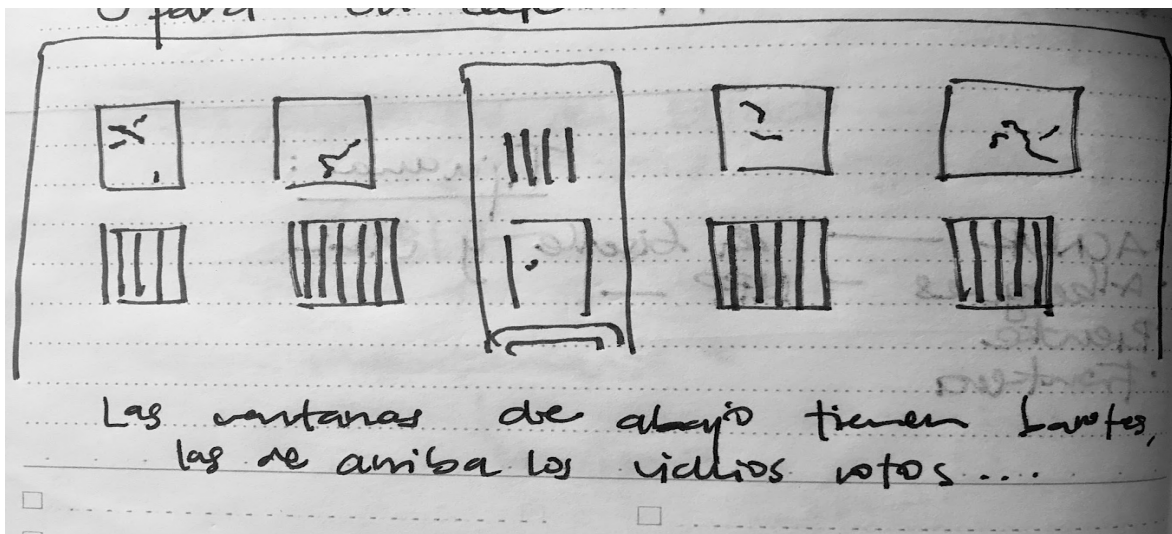 Las ventanas de abajo tienen barrotes,
las de arriba los vidrios rotos....